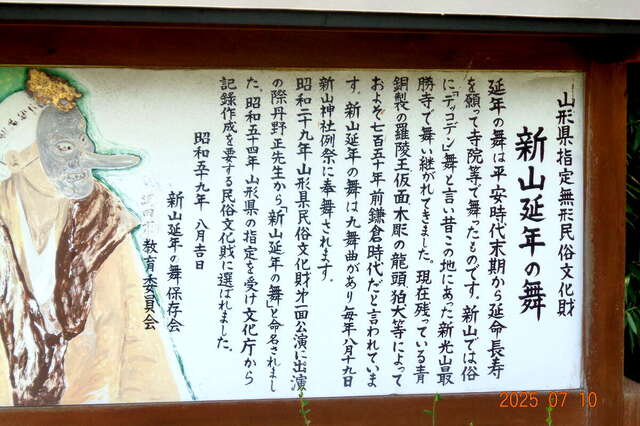 山形県指定無形民俗文化財
新山延年の舞
延年の舞は平安時代末期から延命長寿
を願って寺院等で舞ったものです。新山では俗
に「デッコデン」舞と言い昔この地にあった新光山最
勝寺で舞い継がれてきました。現在残っている青
銅製の羅陵王仮面、木彫の龍頭、狛犬等によって
およそ七百五十年前鎌倉時代だと言われていま
す。新山延年の舞は九舞曲があり毎年八月十九日
新山神社例祭に奉舞されます。
昭和二十九年山形県民俗文化財第一回公演に出演
の際丹野正先生から「新山延年の舞」と命名されまし
た。昭和五十四年山形県の指定を受け文化庁から
記録作成を要する民俗文化財に選ばれました。
昭和五十九年 八月吉日
新山延年の舞保存会
教育委員会
2025 07 10